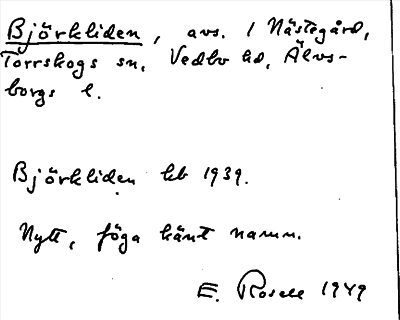 Björkliden, avs. 1 Nästegård,
Torrskogs sn, Vedbo hd, Älvs-
borgs l.
Björkliden kb 1939.
Nytt, föga känt namn.
E. Rosell 1949